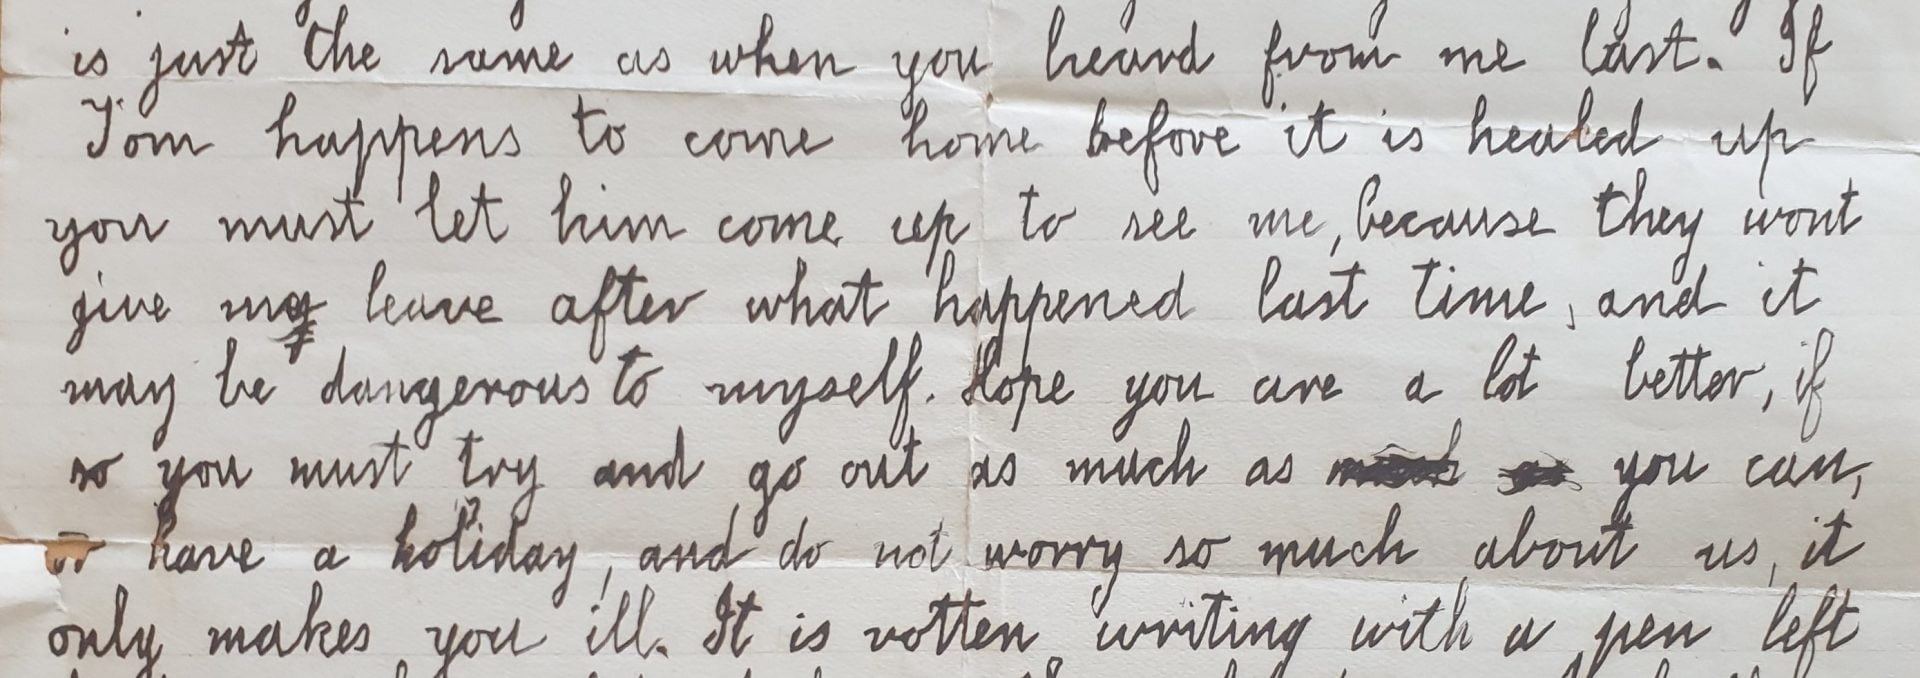 is just the same as when you heard from me last. If
Tom happens to come home before it is healed up
you must let him come up to see me, because they wont
give my leave after what happened last time, and it
may be dangerous to myself. Hope you are a lot better, if
so you must try and go out as much as you can,
or have a holiday, and do not worry so much about us, it
only makes you ill. It is rotten writing with a pen left